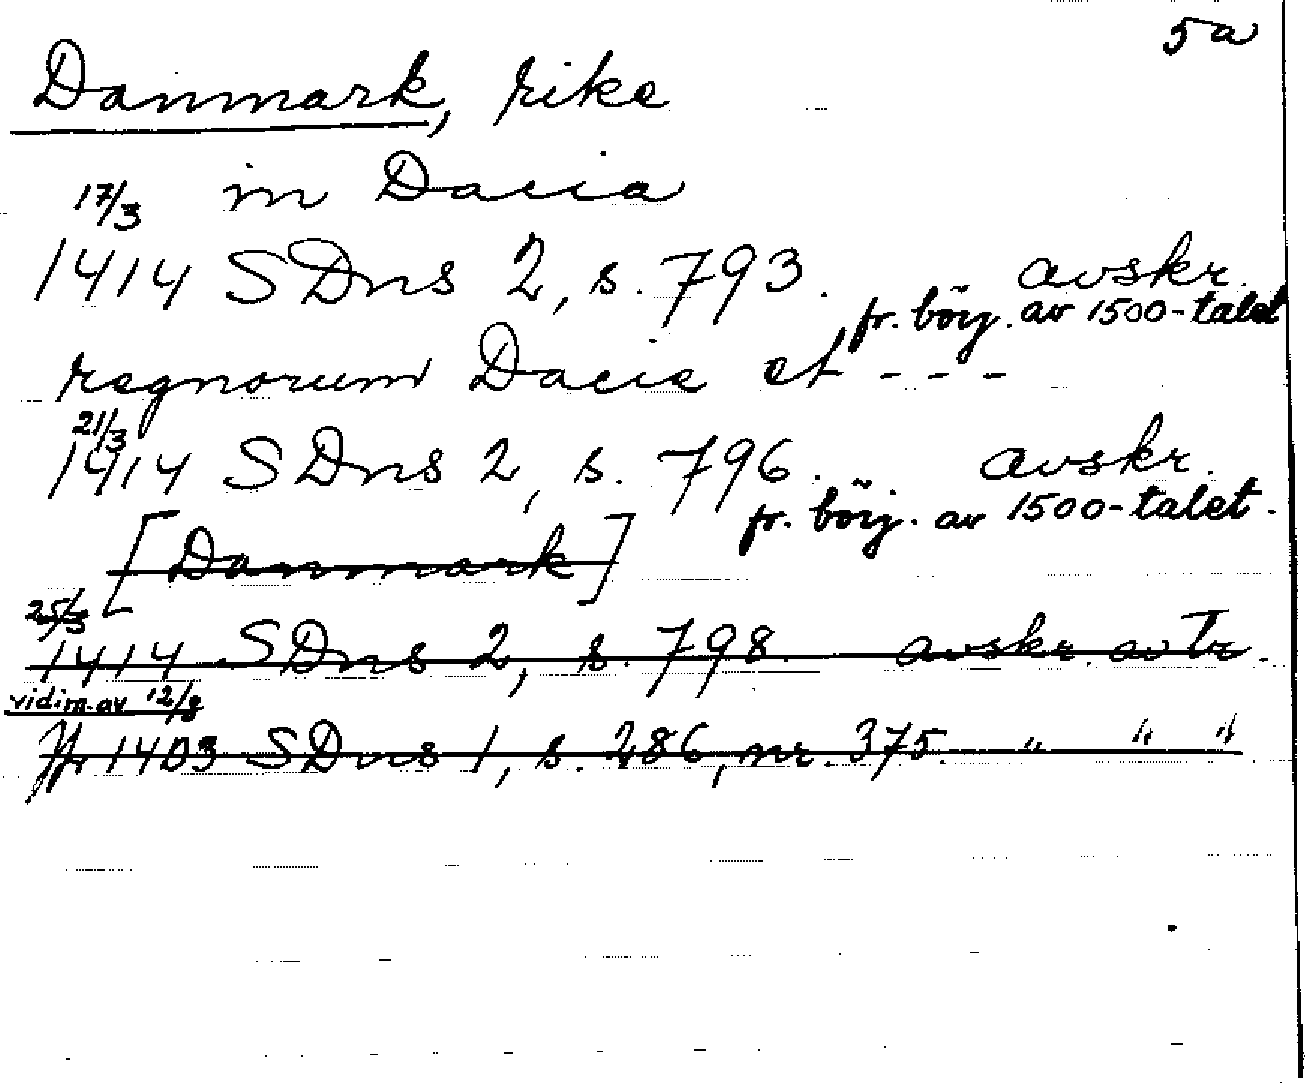 5a
Danmark, rike
17/3 in Dacia
1414 SDns 2, s. 793. avskr.
fr. börj. av 1500-talet
regnorum Dacie et - - -
21/3
1414 SDns 2, s. 796. avskr.
fr. börj. av 1500-talet.
[Danmark]
25/3
1414 SDns 2, s. 798 avskr. av Tr.
vidim. av 12/8
1403 SDns 1, s. 286, nr. 375. " " "